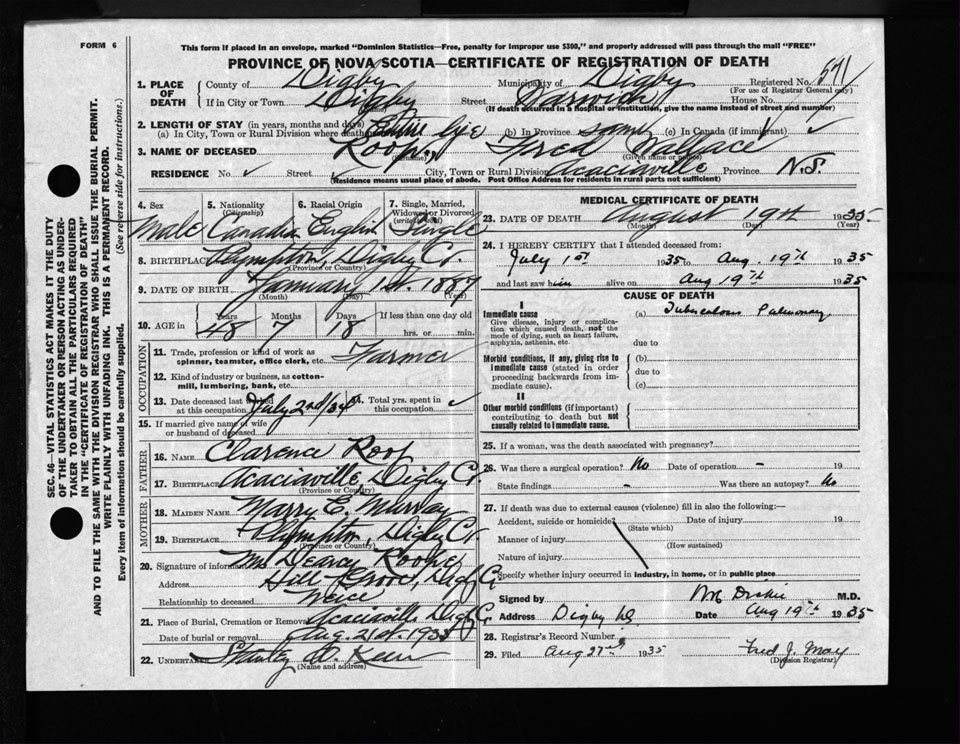 FORM 6
This form if placed in an envelope, marked "Dominion Statistics—Free, penalty for improper use $300," and properly addressed will pass through the mail "FREE"
PROVINCE OF NOVA SCOTIA—CERTIFICATE OF REGISTRATION OF DEATH
1. PLACE OF DEATH County of Digby Municipality of Digby Registered No. 571
(For use of Registrar General only)
If in City or Town Digby Street Warwick House No.
(If death occurred in a hospital or institution, give the name instead of street and number)
2. LENGTH OF STAY (in years, months and days)
(a) In City, Town or Rural Division where death Entire life (b) In Province same (c) In Canada (if immigrant) ✓
3. NAME OF DECEASED Roop, Fred Wallace
(Surname) (Given name or names)
RESIDENCE No. ✓ Street ✓ City, Town or Rural Division Acaciaville Province N.S.
(Residence means usual place of abode. Post Office Address for residents in rural parts not sufficient)
SEC. 46—VITAL STATISTICS ACT MAKES IT THE DUTY
OF THE UNDERTAKER OR PERSON ACTING AS UNDER-
TAKER TO OBTAIN ALL THE PARTICULARS REQUIRED
IN THE "CERTIFICATE OF REGISTRATION OF DEATH"
AND TO FILE THE SAME WITH THE DIVISION REGISTRAR WHO SHALL ISSUE THE BURIAL PERMIT.
WRITE PLAINLY WITH UNFADING INK. THIS IS A PERMANENT RECORD.
Every item of information should be carefully supplied. (See reverse side for instructions.)
4. Sex 5. Nationality (Citizenship) 6. Racial Origin 7. Single, Married, Widowed or Divorced
Male Canadian English Single
8. BIRTHPLACE Plympton, Digby Co.
(Province or Country)
9. DATE OF BIRTH January 1st. 1887
(Month) (Day) (Year)
10. AGE in Years Months Days If less than one day old
48 7 18 hrs. or min.
OCCUPATION
11. Trade, profession or kind of work as spinner, teamster, office clerk, etc. Farmer
12. Kind of industry or business, as cotton-mill, lumbering, bank, etc.
13. Date deceased last worked at this occupation July 2nd/34 14. Total yrs. spent in this occupation ✓
15. If married give name of wife or husband of deceased
FATHER
16. NAME Clarence Roop
17. BIRTHPLACE Acaciaville, Digby Co.
(Province or Country)
MOTHER
18. MAIDEN NAME Marry E. Murray
19. BIRTHPLACE Plympton, Digby Co.
(Province or Country)
20. Signature of informant Mrs Roop
Address Hill Grove, Digby Co.
Relationship to deceased Neice
21. Place of Burial, Cremation or Removal Acaciaville Digby Co.
Date of burial or removal Aug. 21st. 1935
22. UNDERTAKER Stanley
(Name and address)
MEDICAL CERTIFICATE OF DEATH
23. DATE OF DEATH August 19th 1935
(Month) (Day) (Year)
24. I HEREBY CERTIFY that I attended deceased from:
July 1st 1935 to Aug. 19th 1935
and last saw him alive on Aug 19th 1935
CAUSE OF DEATH
I
Immediate cause (a) Tuberculosis Pulmonary
Give disease, injury or complication which caused death, not the mode of dying, such as heart failure, asphyxia, asthenia, etc.
due to
Morbid conditions, if any, giving rise to immediate cause (stated in order proceeding backwards from immediate cause).
(b)
due to
(c)
II
Other morbid conditions (if important) contributing to death but not causally related to immediate cause.
25. If a woman, was the death associated with pregnancy?
26. Was there a surgical operation? No Date of operation – 19
State findings – Was there an autopsy? No
27. If death was due to external causes (violence) fill in also the following:—
Accident, suicide or homicide? Date of injury 19
(State which)
Manner of injury
(How sustained)
Nature of injury
Specify whether injury occurred in industry, in home, or in public place
Signed by M.D.
Address Digby NS Date Aug 19th 1935
28. Registrar's Record Number
29. Filed Aug 27th 1935 Fred J. May
(Division Registrar)